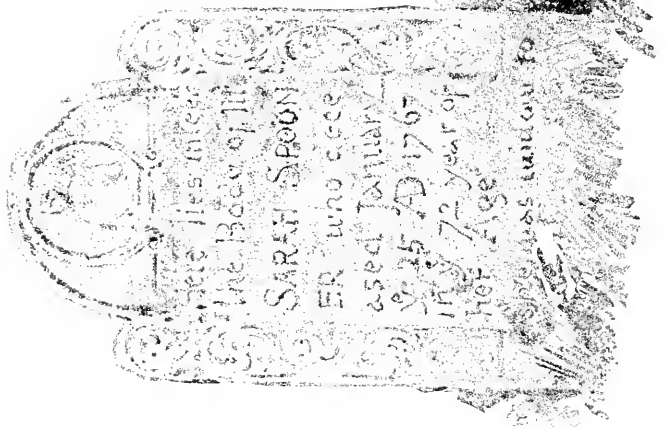 Here lies inter
the Body of
SARAH SPOON
ER who dece
ased January
ye 25 AD 1767
in ye 72 year of
Her Age
she was widow to